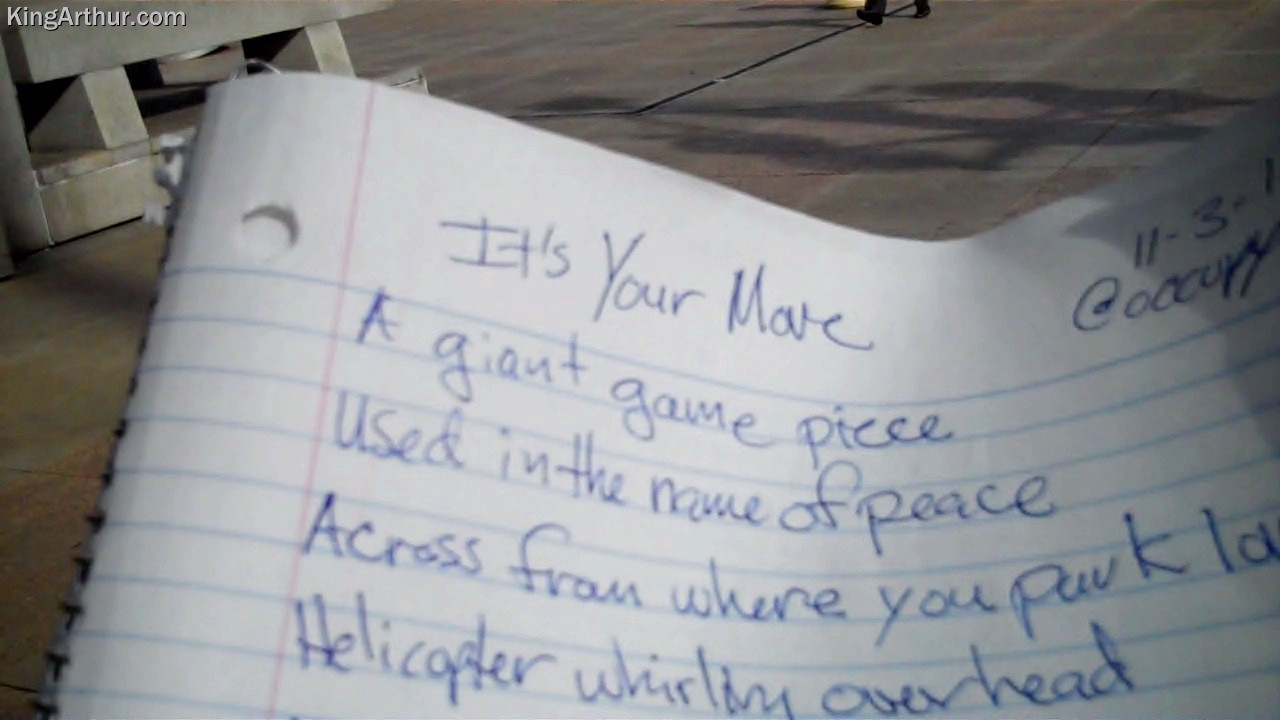 KingArthur.com
11-3-1
@occupy
It's Your Move
A giant game piece
Used in the name of peace
Across from where you park la
Helicopter whirling overhead